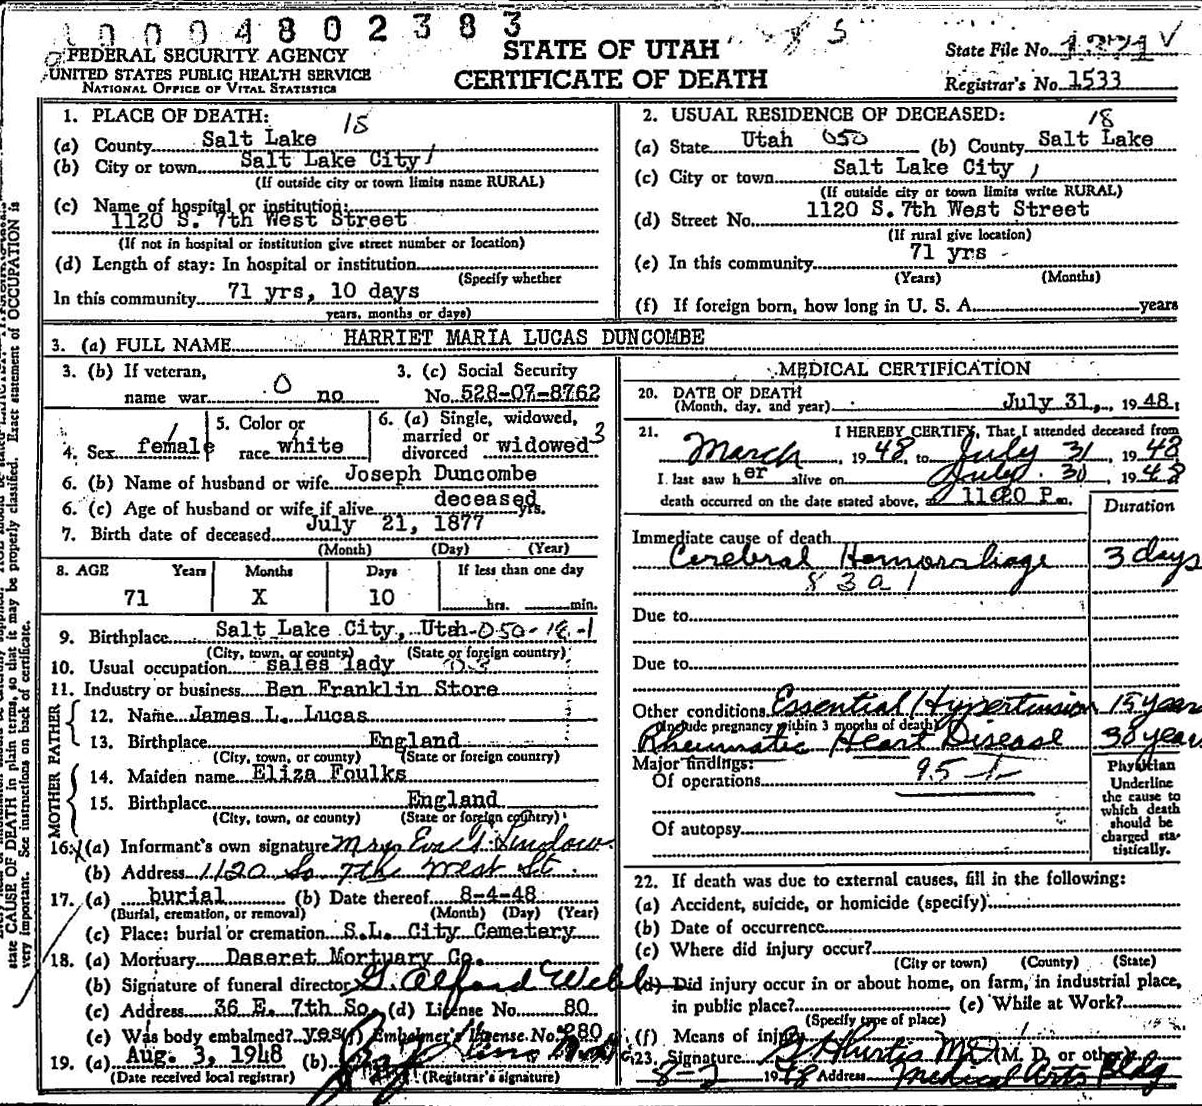 0004802383
FEDERAL SECURITY AGENCY
UNITED STATES PUBLIC HEALTH SERVICE
NATIONAL OFFICE OF VITAL STATISTICS
STATE OF UTAH
CERTIFICATE OF DEATH
State File No.
Registrar's No. 1533
1. PLACE OF DEATH: 15
(a) County Salt Lake
(b) City or town Salt Lake City
(If outside city or town limits name RURAL)
(c) Name of hospital or institution:
1120 S. 7th West Street
(If not in hospital or institution give street number or location)
(d) Length of stay: In hospital or institution
(Specify whether
In this community 71 yrs, 10 days
years, months or days)
2. USUAL RESIDENCE OF DECEASED: 18
(a) State Utah 050 (b) County Salt Lake
(c) City or town Salt Lake City
(If outside city or town limits write RURAL)
(d) Street No. 1120 S. 7th West Street
(If rural give location)
(e) In this community 71 yrs
(Years) (Months)
(f) If foreign born, how long in U. S. A. years
3. (a) FULL NAME HARRIET MARIA LUCAS DUNCOMBE
3. (b) If veteran,
name war 0 no
3. (c) Social Security
No. 528-07-8762
4. Sex female
5. Color or
race white
6. (a) Single, widowed,
married or
divorced widowed 3
6. (b) Name of husband or wife Joseph Duncombe
6. (c) Age of husband or wife if alive deceased yrs.
7. Birth date of deceased July 21, 1877
(Month) (Day) (Year)
8. AGE Years Months Days If less than one day
71 X 10 hrs. min.
9. Birthplace Salt Lake City, Utah-050-18-1
(City, town, or county) (State or foreign country)
10. Usual occupation sales lady
11. Industry or business Ben Franklin Store
FATHER
12. Name James L. Lucas
13. Birthplace England
(City, town, or county) (State or foreign country)
MOTHER
14. Maiden name Eliza Foulks
15. Birthplace England
(City, town, or county) (State or foreign country)
16. (a) Informant's own signature Mrs. Eva
(b) Address 1120 So 7th West St.
17. (a) burial (b) Date thereof 8-4-48
(Burial, cremation, or removal) (Month) (Day) (Year)
(c) Place: burial or cremation S.L. City Cemetery
18. (a) Mortuary Deseret Mortuary Co.
(b) Signature of funeral director G. Alford Webb
(c) Address 36 E. 7th So. (d) License No. 80
(e) Was body embalmed? yes (f) Embalmer's License No. 280
19. (a) Aug. 3, 1948 (b)
(Date received local registrar) (Registrar's signature)
MEDICAL CERTIFICATION
20. DATE OF DEATH
(Month, day, and year) July 31, 1948
21. I HEREBY CERTIFY, That I attended deceased from
March, 1948, to July 31 1948
I last saw her alive on July 30, 1948
death occurred on the date stated above, 11:20 P.m.
Duration
Immediate cause of death
Cerebral Hemorrhiage 3 days
83a1
Due to
Due to
Other conditions Essential Hypertension 15 years
(Include pregnancy within 3 months of death)
Rheumatic Heart Disease 38 years
Major findings: 95-1-
Of operations
Of autopsy
Physician
Underline
the cause to
which death
should be
charged sta-
tistically.
22. If death was due to external causes, fill in the following:
(a) Accident, suicide, or homicide (specify)
(b) Date of occurrence
(c) Where did injury occur?
(City or town) (County) (State)
(d) Did injury occur in or about home, on farm, in industrial place,
in public place? (e) While at Work?
(Specify type of place)
(f) Means of injury
23. Signature M.D. (M. D. or other)
1948 Address Medical Arts Bldg
state CAUSE OF DEATH in plain terms, so that it may be properly classified. Exact statement of OCCUPATION is
very important. See instructions on back of certificate.